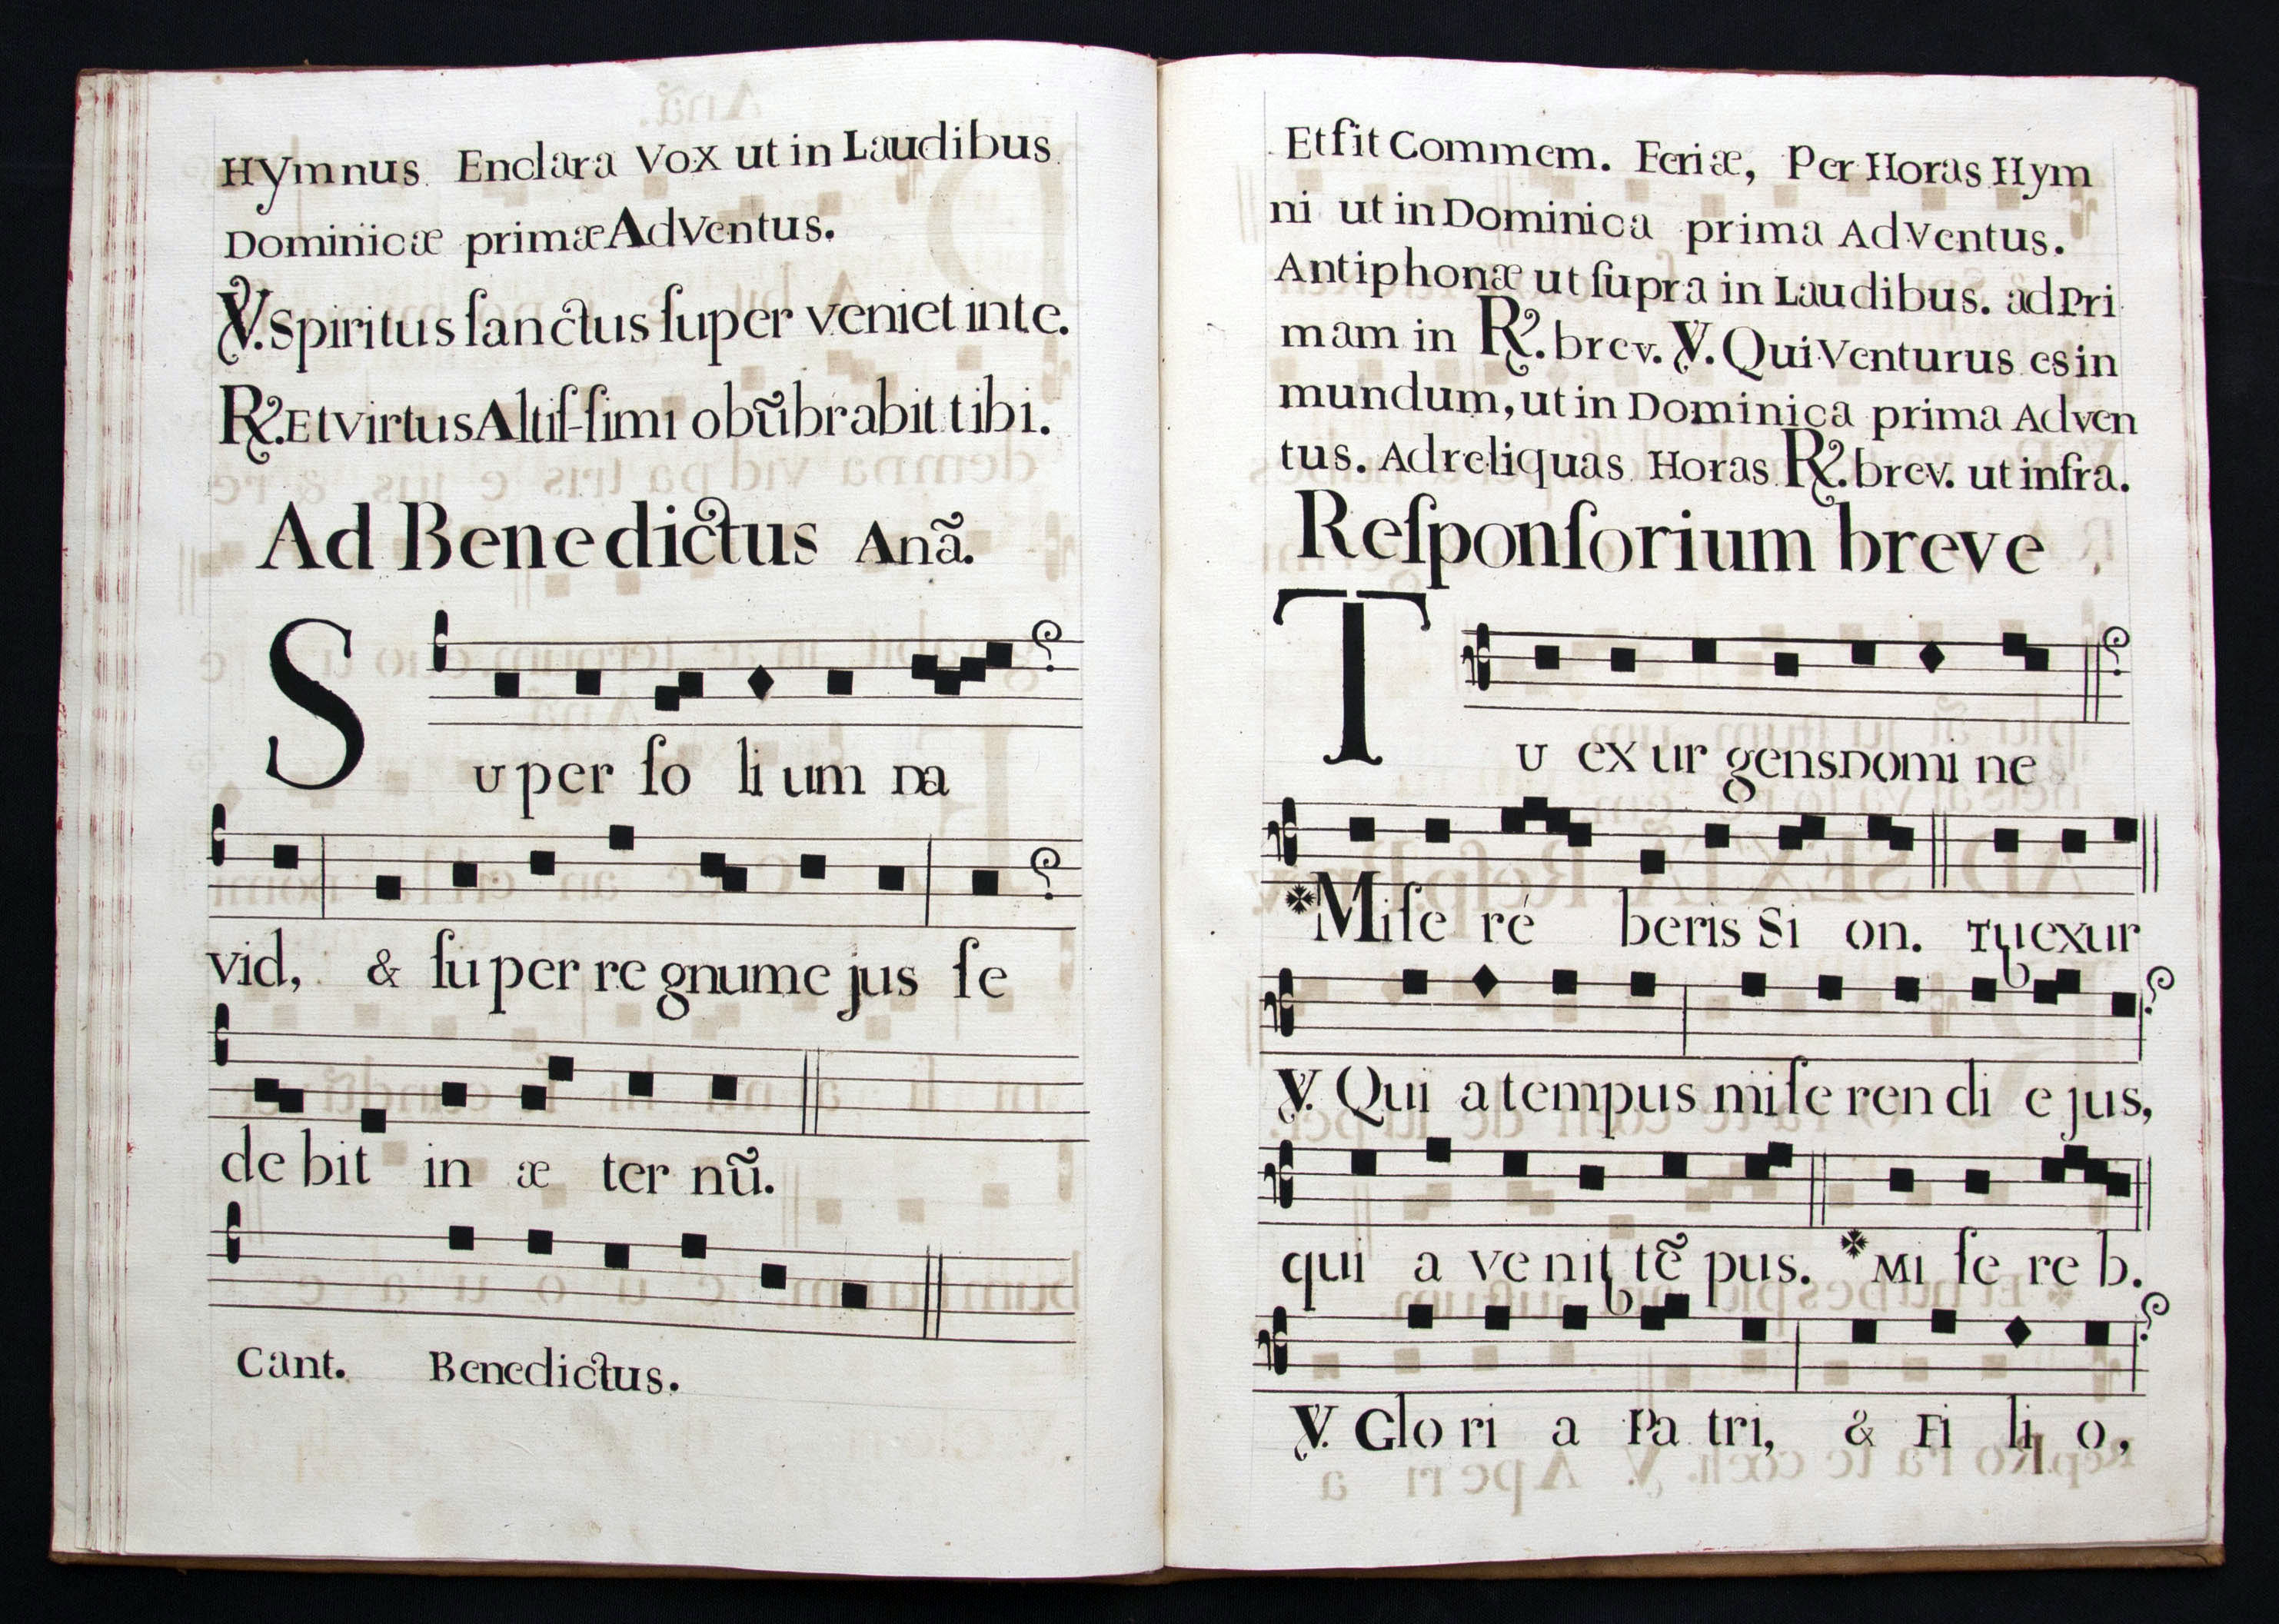 Hymnus Enclara Vox ut in Laudibus
Dominicæ primæ AdVentus.
℣. Spiritus ſanctus ſuper veniet in te.
℟. Et virtus Altiſ-ſimi obũbrabit tibi.
Ad Benedictus Anã.
S
uper ſo li um Da
vid, & ſu per re gnum e jus ſe
de bit in æ ter nũ.
Cant. Benedictus.
Et fit Commem. Feriæ, Per Horas Hym
ni ut in Dominica prima AdVentus.
Antiphonæ ut ſupra in Laudibus. ad Pri
mam in ℟. brev. ℣. Qui Venturus es in
mundum, ut in Dominica prima Adven
tus. Ad reliquas Horas ℟. brev. ut infra.
Reſponſorium breve
T
u ex ur gens Domi ne
*Miſe ré beris Si on. Tu exur
℣. Qui a tempus miſe ren di e jus,
qui a ve nit tẽ pus. *Mi ſe re b.
℣. Glo ri a Pa tri, & Fi li o,